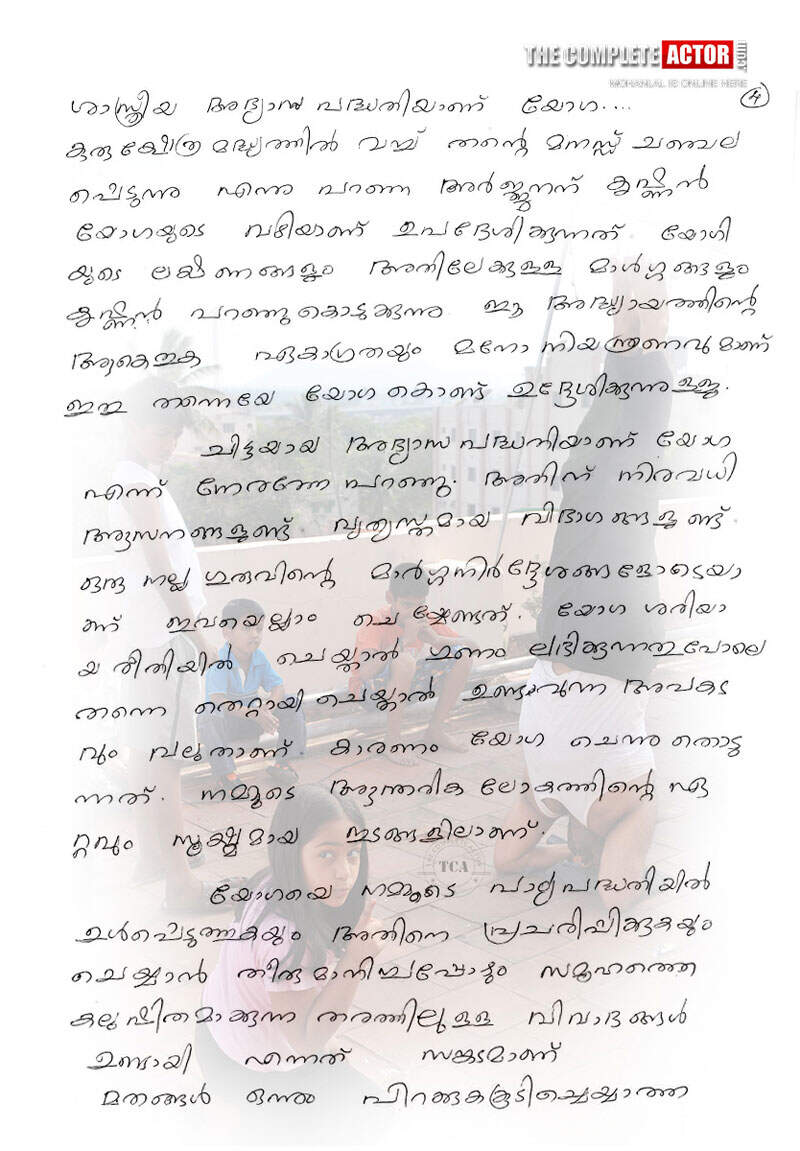 THE COMPLETE ACTOR .COM
MOHANLAL IS ONLINE HERE
4
ശാസ്ത്രീയ അഭ്യാസ പദ്ധതിയാണ് യോഗ....
കുരുക്ഷേത്ര മദ്ധ്യത്തിൽ വച്ച് തന്റെ മനസ്സ് ചഞ്ചല
പ്പെടുന്നു എന്നു പറഞ്ഞ അർജ്ജുനന് കൃഷ്ണൻ
യോഗയുടെ വഴിയാണ് ഉപദേശിക്കുന്നത്. യോഗി
യുടെ ലക്ഷണങ്ങളും അതിലേക്കുള്ള മാർഗ്ഗങ്ങളും
കൃഷ്ണൻ പറഞ്ഞു കൊടുക്കുന്നു. ഈ അദ്ധ്യായത്തിന്റെ
ആകെത്തുക ഏകാഗ്രതയും മനോ നിയന്ത്രണവുമാണ്
ഇതു തന്നെയേ യോഗ കൊണ്ട് ഉദ്ദേശിക്കുന്നുള്ളൂ.
ചിട്ടയായ അഭ്യാസ പദ്ധതിയാണ് യോഗ
എന്ന് നേരത്തേ പറഞ്ഞു. അതിന് നിരവധി
ആസനങ്ങളുണ്ട്. വ്യത്യസ്തമായ വിഭാഗങ്ങളുണ്ട്.
ഒരു നല്ല ഗുരുവിന്റെ മാർഗ്ഗനിർദ്ദേശങ്ങളോടെയാ
ണ് ഇവയെല്ലാം ചെയ്യേണ്ടത്. യോഗ ശരിയാ
യ രീതിയിൽ ചെയ്താൽ ഗുണം ലഭിക്കുന്നതുപോലെ
തന്നെ തെറ്റായി ചെയ്താൽ ഉണ്ടാവുന്ന അപകട
വും വലുതാണ്. കാരണം യോഗ ചെന്നു തൊടു
ന്നത്. നമ്മുടെ ആന്തരിക ലോകത്തിന്റെ ഏ
റ്റവും സൂക്ഷ്മമായ ഇടങ്ങളിലാണ്.
TCA
യോഗയെ നമ്മുടെ പാഠ്യപദ്ധതിയിൽ
ഉൾപ്പെടുത്തുകയും അതിനെ പ്രചരിപ്പിക്കുകയും
ചെയ്യാൻ തീരുമാനിച്ചപ്പോഴും സമൂഹത്തെ
കലുഷിതമാക്കുന്ന തരത്തിലുള്ള വിവാദങ്ങൾ
ഉണ്ടായി എന്നത് സങ്കടമാണ്
മതങ്ങൾ ഒന്നും പിറക്കുകകൂടിച്ചെയ്യാത്ത